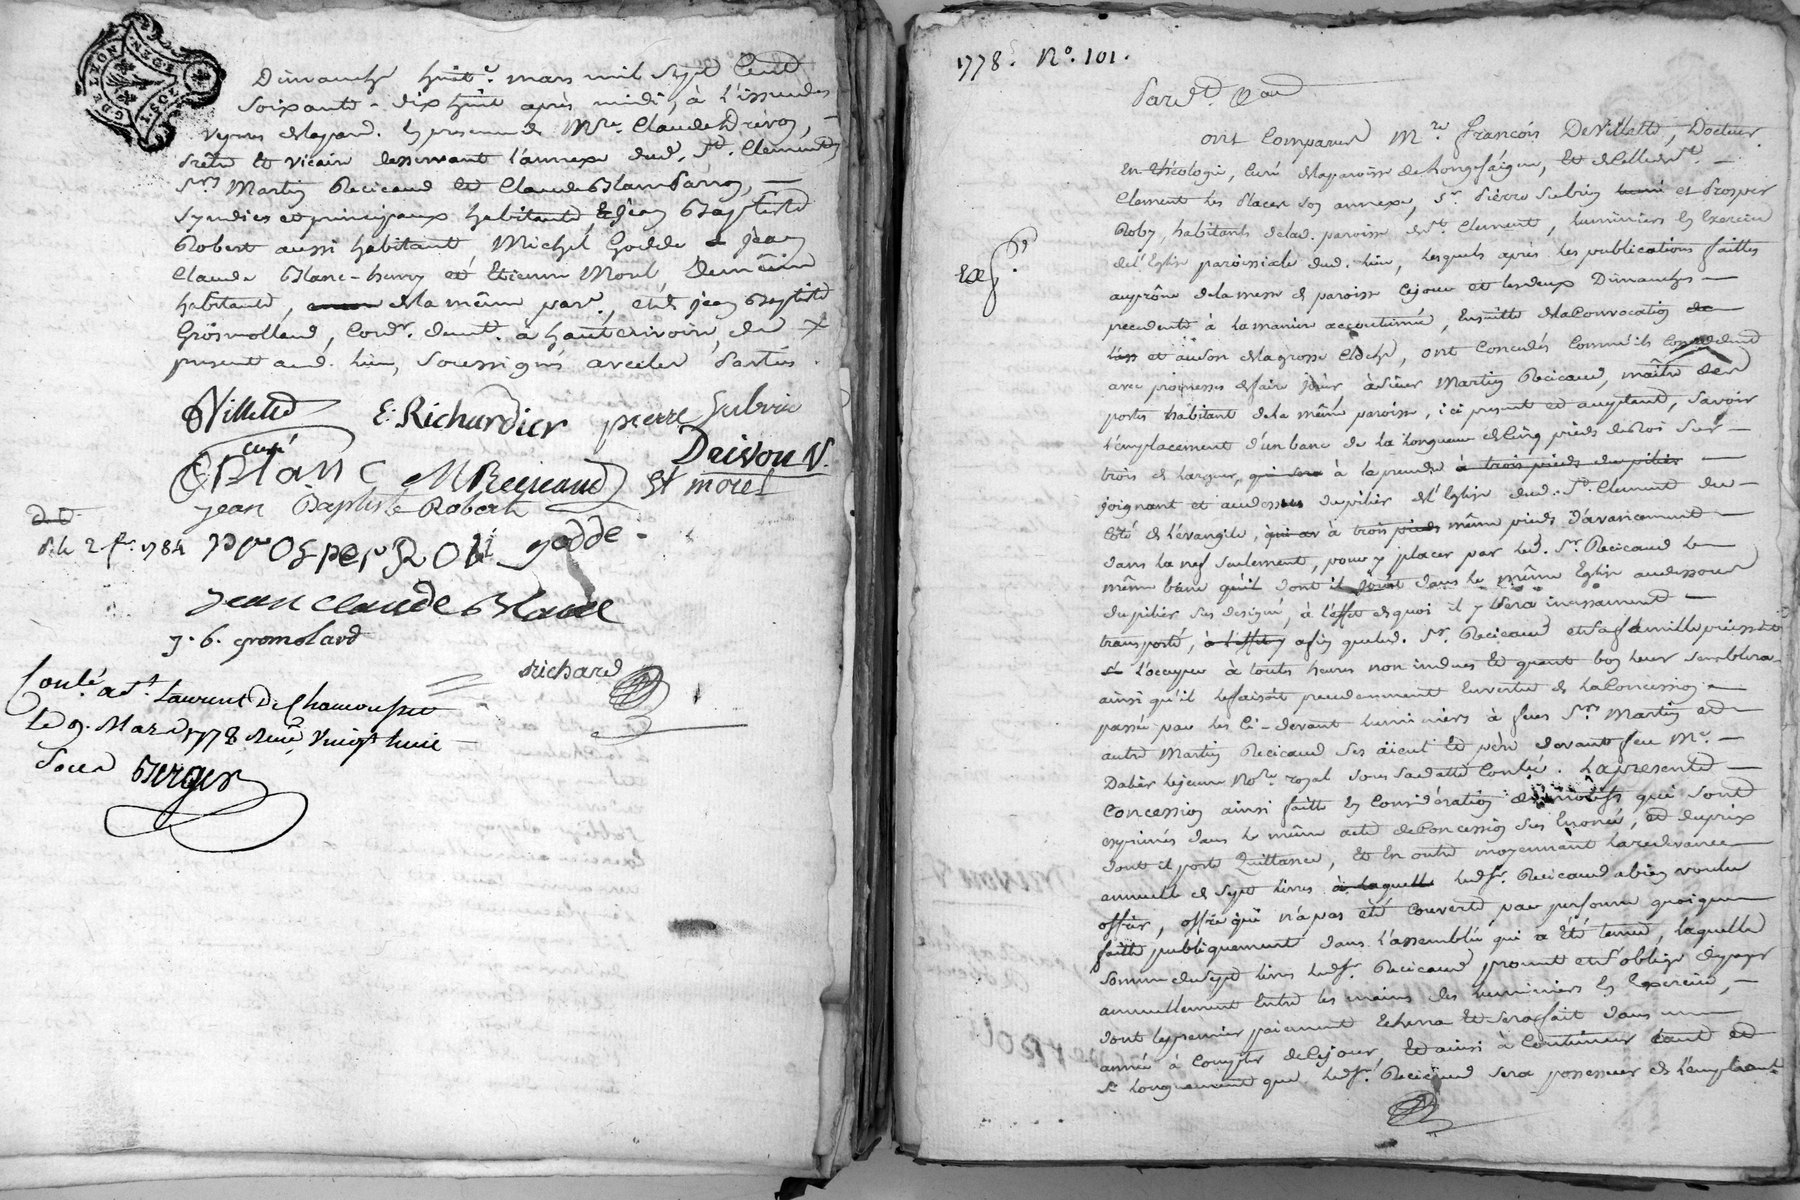 G. DE LYON
Dimanche huit.e mars mil sept Cent
Soixante-dix huit après midi, à l'issue des
vepres En presence de Mre. Claude Drivon,
Prêtre et vicaire desservant l'annexe dud. St. Clement
Srs Martin Recicaud et Claude Blanc
Syndics et principaux habitants, Jean Baptiste
Robert aussi habitant Michel Godde Jean
Claude Blanc-henry et Etienne Morel Demême
habitants, de la même parse, et de jean Baptiste
Gromolland, Cordr. demt. à hauterivoire, de
present aud. lieu, Soussignés avec les Parties.
DeVillette E. Richardier pierre Subrin
Curé
C Blanc M Recicaud Drivon V.
jean Baptiste Robert Et morel
d. d.
dele 2 fr. 1784 prosper ROBi godde
jean claude Blanc
j. b. gromolard
Richard
Conté. à St. Laurent De Chamousset
Le 9. Mars 1778 Reçu Vingt huit
Sous Berger
1778. No. 101.
Pard.t
ont Comparu Mre françois DeVillette, Docteur
En théologie, Curé de la paroisse de Longessaigne, et de Celle de St.
Clement les Places son annexe, Sr. Pierre Subrin et Prosper
Roby, habitants de lad. paroisse de St. Clement, luminiers En Exercice
de l'Eglise paroissiale dud. lieu, lesquels après les publications faittes
au prône de la messe de paroisse cejour et les deux Dimanches
precedents à la maniere accoutumée, Ensuitte de la Convocation
et au son de la grosse Cloche, ont Concédés Comme ils Concedent
Exp.
avec promesses de faire jouir à Sieur Martin Recicaud, maître des
postes habitant de la même paroisse, ici present et acceptant, Savoir
l'emplacement d'un banc de la longueur de Cinq pieds de Roi Sur
trois de largeur, qui sera à le prendre à trois pieds du pilier
joignant et audessus du pilier de l'Eglise dud. St. Clement du
Côté de l'évangile, à trois pieds même pieds d'avancement
dans la nef Seulement, pour y placer par led. Sr. Recicaud le
même banc qu'il dont il jouit dans la même Eglise audessous
du pilier Sus designé, à l'effet de quoi il y sera incessamment
transporté, à l'effet afin que led. Sr. Recicaud et sa famille puissent
l'occuper à toutes heures non indues et quant bon leur Semblera
ainsi qu'il le faisoit precedemment En vertu de la Concession
passée par les Ci-devant luminiers à feus Srs Martin et
autre Martin Recicaud Ses aïeul et père devant feu Me.
Dalier lejeune Nore royal Sous Sa datte Contée. La presente
Concession ainsi faitte En Considération des motifs qui sont
exprimés dans le même acte de Concession Sus Enoncé, et du prix
dont il porte Quittance, et En outre moyennant la redevance
annuelle de Sept livres à laquelle led. Sr. Recicaud a bien voulu
offrir, offre qui n'a pas été couverte par personne quoique
faitte publiquement dans l'assemblée qui a été tenue, laquelle
Somme de Sept livres led. Sr. Recicaud promet et s'oblige de payer
annuellement Entre les mains des luminiers En Exercice,
dont le premier paiement Echerra et sera fait dans un
année à Compter de Cejour, et ainsi à Continuer tant et
Si longuement que led. Sr. Recicaud sera possesseur de l'emplacemt